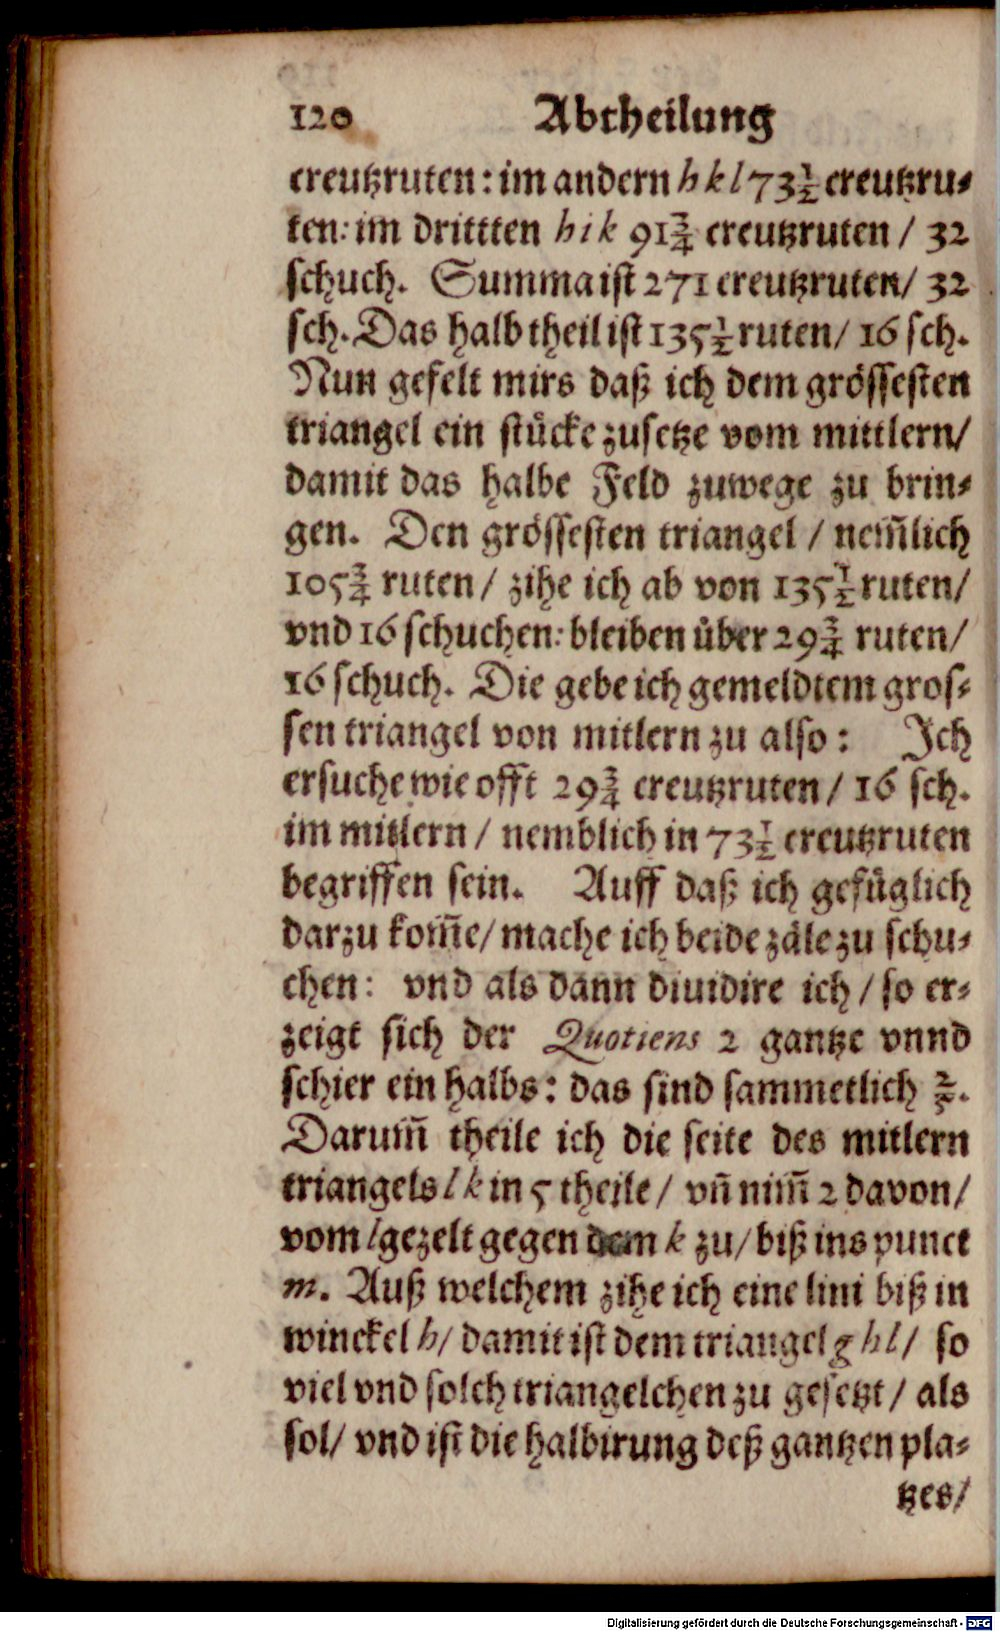 120 Abtheilung
creutzruten: im andern h k l 73½ creutzru⸗
ten: im drittten h i k 91¾ creutzruten / 32
schuch. Summa ist 271 creutzruten/ 32
sch. Das halb theil ist 135½ ruten/ 16 sch.
Nun gefelt mirs daß ich dem grössesten
triangel ein stücke zusetze vom mittlern/
damit das halbe Feld zuwege zu brin⸗
gen. Den grössesten triangel / nem̃lich
105¾ ruten / zihe ich ab von 135½ ruten/
vnd 16 schuchen: bleiben über 29¾ ruten/
16 schuch. Die gebe ich gemeldtem gros⸗
sen triangel von mitlern zu also: Ich
ersuche wie offt 29¾ creutzruten / 16 sch.
im mitlern / nemblich in 73½ creutzruten
begriffen sein. Auff daß ich gefüglich
darzu kom̃e/ mache ich beide zäle zu schu⸗
chen: vnd als dann diuidire ich / so er⸗
zeigt sich der Quotiens 2 gantze vnnd
schier ein halbs: das sind sammetlich ⅖.
Darum̃ theile ich die seite des mitlern
triangels l k in 5 theile / vñ nim̃ 2 davon/
vom l gezelt gegen dem k zu/ biß ins punct
m. Auß welchem zihe ich eine lini biß in
winckel h/ damit ist dem triangel g h l/ so
viel vnd solch triangelchen zu gesetzt / als
sol/ vnd ist die halbirung deß gantzen pla⸗
tzes/
Digitalisierung gefördert durch die Deutsche Forschungsgemeinschaft - DFG